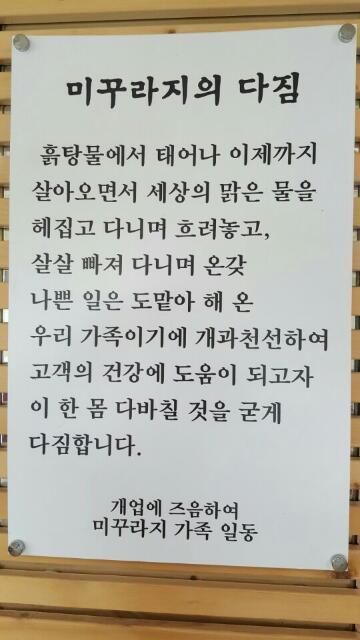 미꾸라지의 다짐
흙탕물에서 태어나 이제까지
살아오면서 세상의 맑은 물을
헤집고 다니며 흐려놓고,
살살 빠져 다니며 온갖
나쁜 일은 도맡아 해 온
우리 가족이기에 개과천선하여
고객의 건강에 도움이 되고자
이 한 몸 다바칠 것을 굳게
다짐합니다.
개업에 즈음하여
미꾸라지 가족 일동